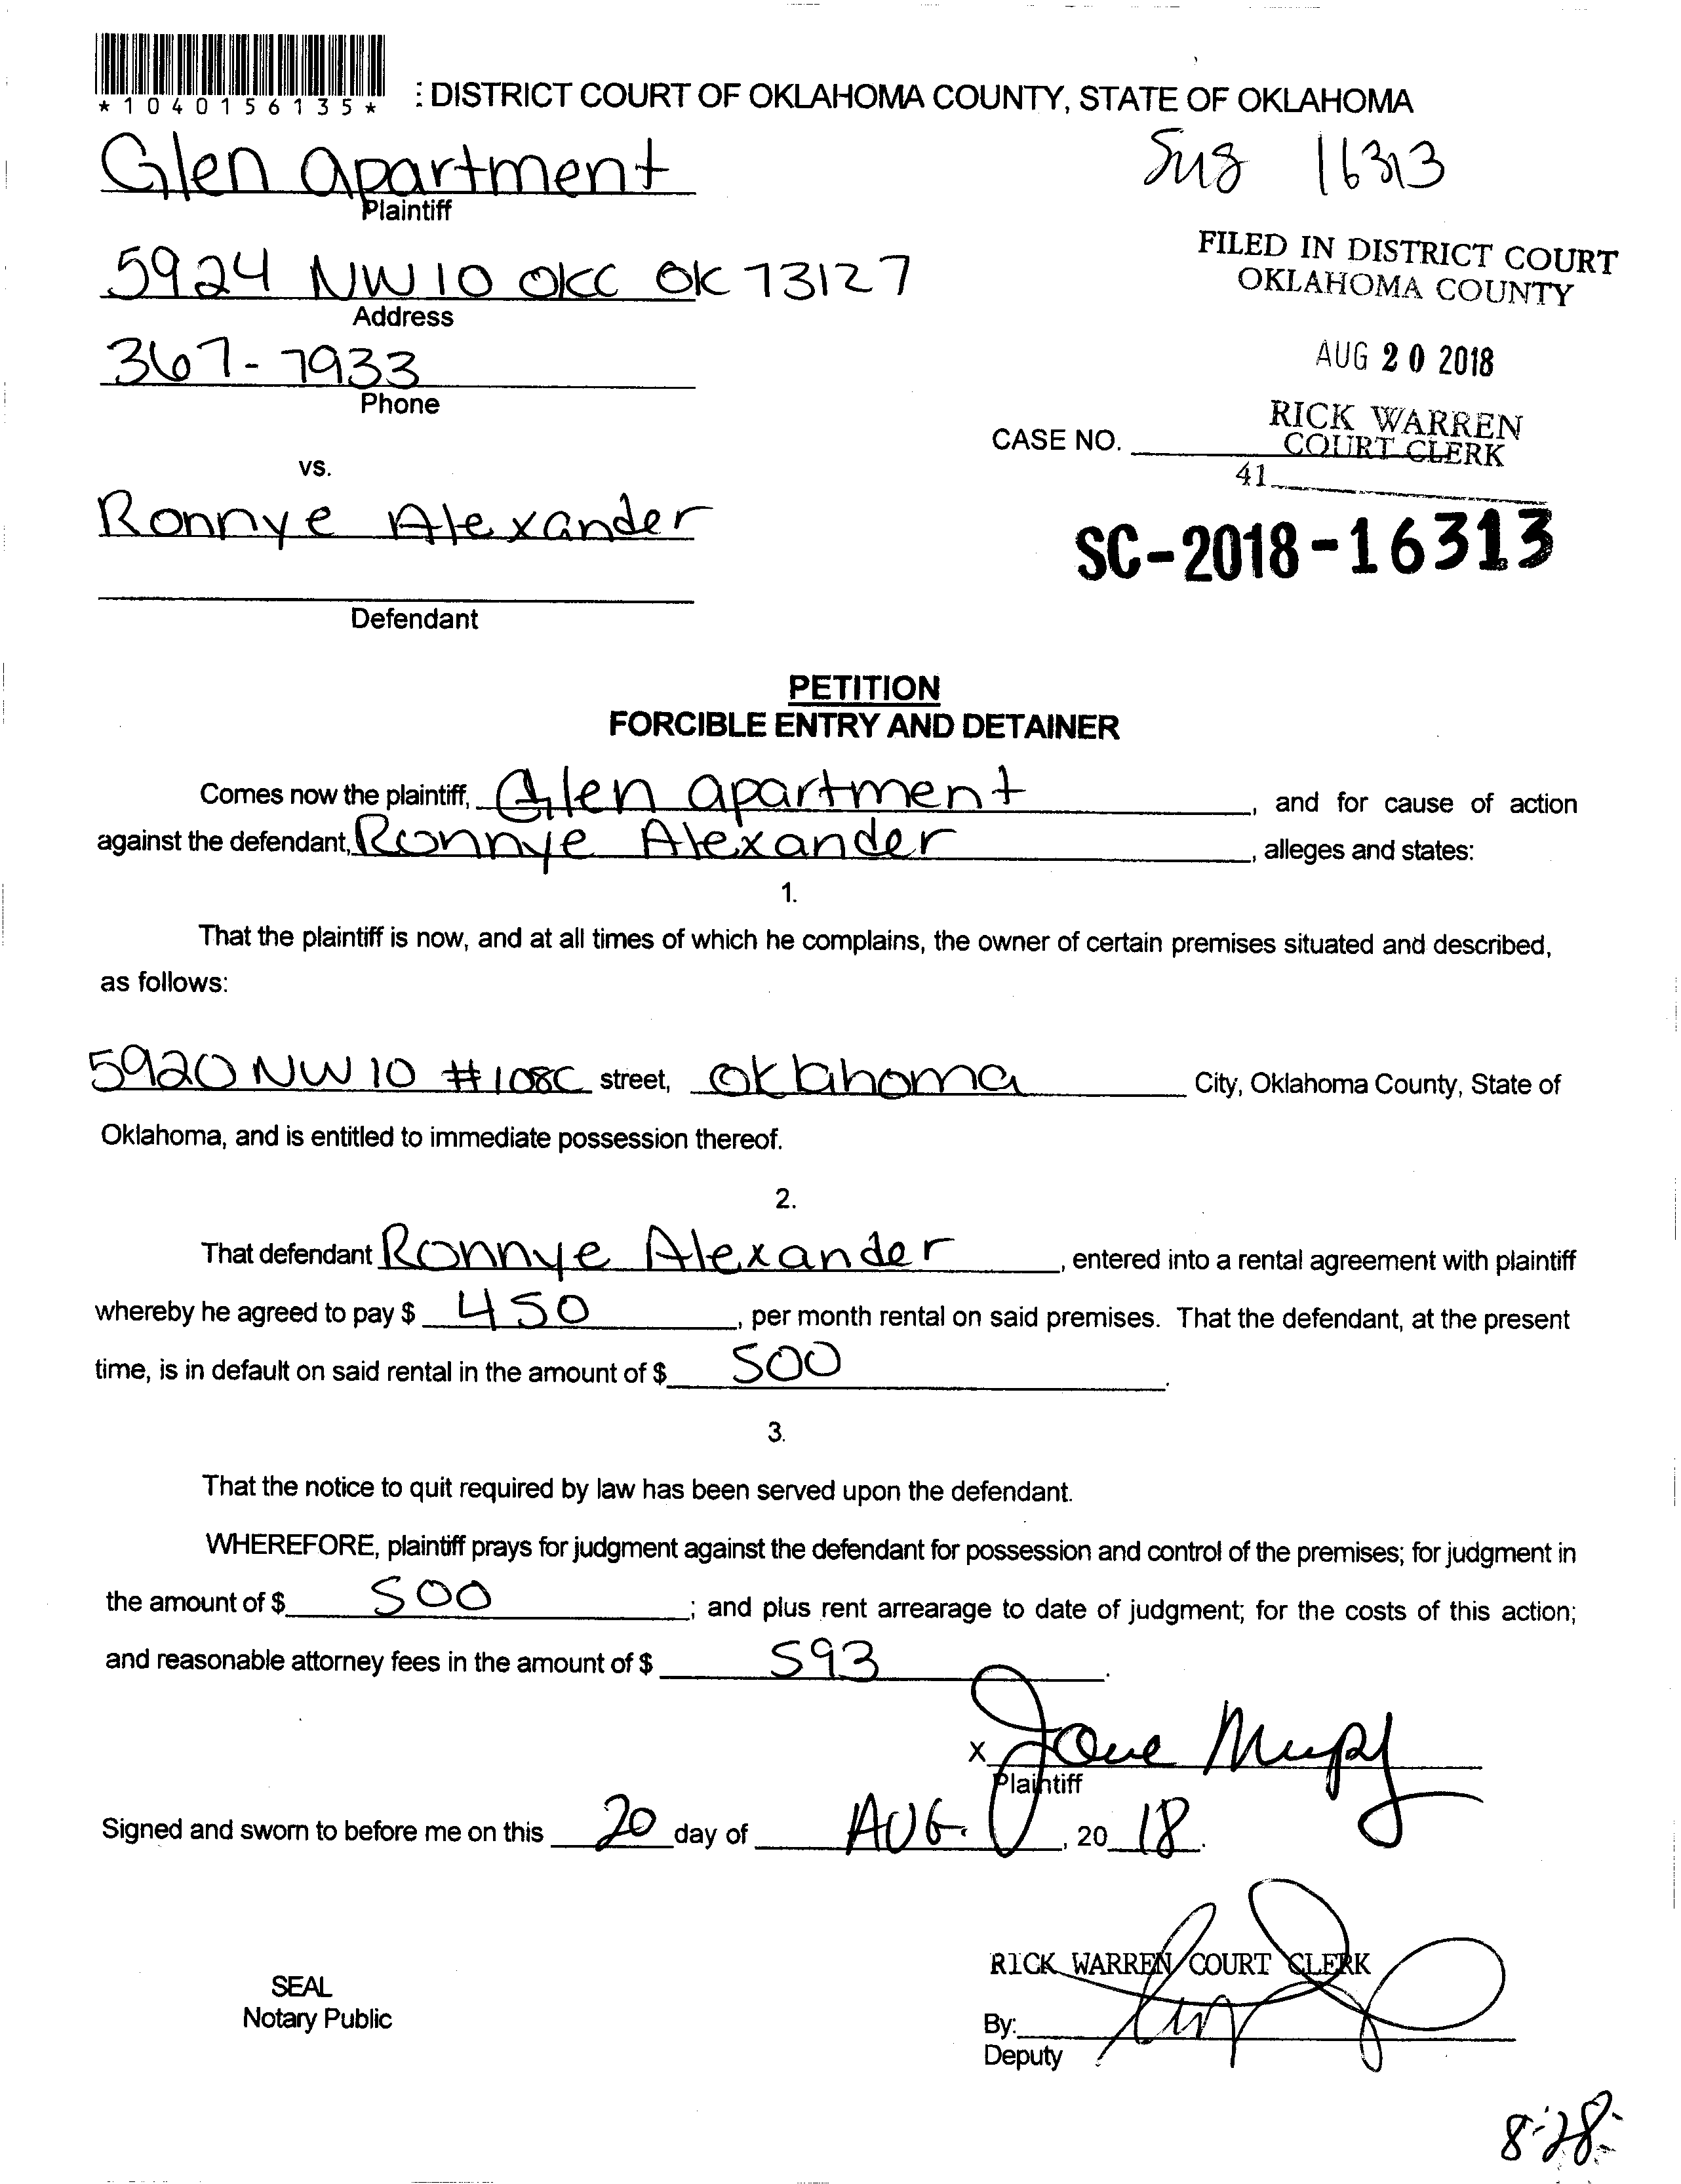 *1040156135*
: DISTRICT COURT OF OKLAHOMA COUNTY, STATE OF OKLAHOMA
Glen apartment
16313
Plaintiff
FILED IN DISTRICT COURT
OKLAHOMA COUNTY
5924 NW 10 OKC OK 73127
Address
AUG 20 2018
367-7933
Phone
RICK WARREN
COURT CLERK
CASE NO.
41
vs.
Ronnye Alexander
SC-2018-16313
Defendant
PETITION
FORCIBLE ENTRY AND DETAINER
Comes now the plaintiff, Glen apartment, and for cause of action
against the defendant, Ronnye Alexander, alleges and states:
1.
That the plaintiff is now, and at all times of which he complains, the owner of certain premises situated and described,
as follows:
5920 NW 10 #108C street, Oklahoma City, Oklahoma County, State of
Oklahoma, and is entitled to immediate possession thereof.
2.
That defendant Ronnye Alexander, entered into a rental agreement with plaintiff
whereby he agreed to pay $ 450, per month rental on said premises. That the defendant, at the present
time, is in default on said rental in the amount of $ 500.
3.
That the notice to quit required by law has been served upon the defendant.
WHEREFORE, plaintiff prays for judgment against the defendant for possession and control of the premises; for judgment in
the amount of $ 500; and plus rent arrearage to date of judgment; for the costs of this action;
and reasonable attorney fees in the amount of $ 593.
X
Plaintiff
Signed and sworn to before me on this 20 day of AUG., 20 18.
RICK WARREN COURT CLERK
SEAL
Notary Public
By:
Deputy
8-28